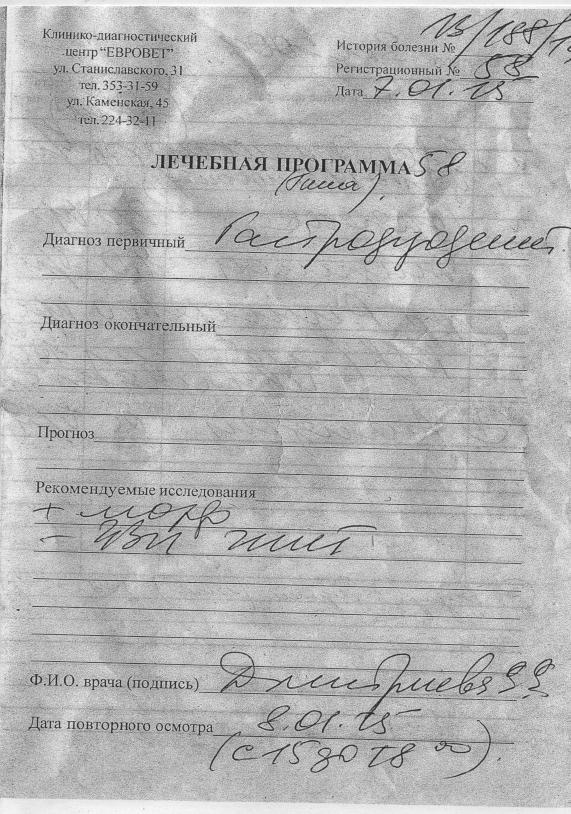 Клинико-диагностический
центр “ЕВРОВЕТ”
ул. Станиславского, 31
тел. 353-31-59
ул. Каменская, 45
тел. 224-32-11
История болезни № 13/188/
Регистрационный № 58
Дата 7.01.15
ЛЕЧЕБНАЯ ПРОГРАММА 58
Диагноз первичный Гастродуоденит
Диагноз окончательный
Прогноз
Рекомендуемые исследования
+ морф
Ф.И.О. врача (подпись) Дмитриева
Дата повторного осмотра 8.01.15
(с 15 до 18 ⁰⁰).